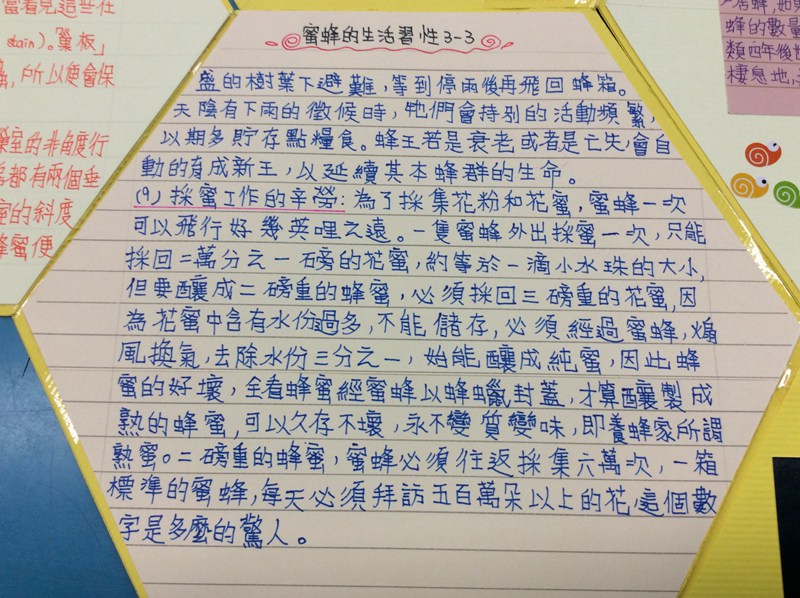 蜜蜂的生活習性3-3
盛的樹葉下避難，等到停雨後再飛回蜂箱。
天陰有下雨的徵候時，牠們會特別的活動頻繁，
以期多貯存點糧食。蜂王若是衰老或者是亡失，會自
動的育成新王，以延續其本蜂群的生命。
(9)採蜜工作的辛勞：為了採集花粉和花蜜，蜜蜂一次
可以飛行好幾英哩之遠。一隻蜜蜂外出採蜜一次，只能
採回二萬分之一磅的花蜜，約等於一滴小水珠的大小，
但要釀成二磅重的蜂蜜，必須採回三磅重的花蜜，因
為花蜜中含有水份過多，不能儲存，必須經過蜜蜂，煽
風換氣，去除水份三分之一，始能釀成純蜜，因此蜂
蜜的好壞，全看蜂蜜經蜜蜂以蜂蠟封蓋，才算釀製成
熟的蜂蜜，可以久存不壞，永不變質變味，即養蜂家所謂
熟蜜。二磅重的蜂蜜，蜜蜂必須往返採集六萬次，一箱
標準的蜜蜂，每天必須拜訪五百萬朵以上的花，這個數
字是多麼的驚人。
當看見這些在
stain)。巢板」
所以便會保
室的非角度行
都有兩個垂
室的斜度
蜂蜜便
蜂的數量
類四年後
棲息地